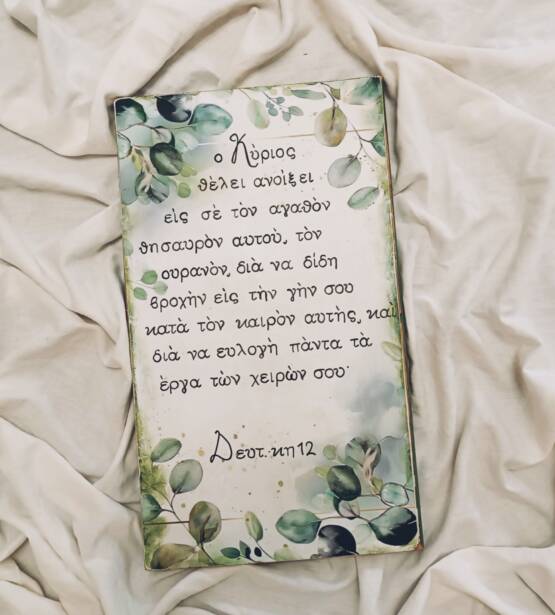 ο Κύριος
θὲλει ανοὶξει
εἰς σὲ τὸν αγαθὸν
θησαυρὸν αυτοὺ, τὸν
ουρανὸν, διὰ να δίδη
βροχὴν εἰς τὴν γὴν σου
κατὰ τὸν καιρὸν αυτὴς, καὶ
διὰ να ευλογὴ πὰντα τὰ
ὲργα τὼν χειρὼν σου·
Δευτ. κη 12